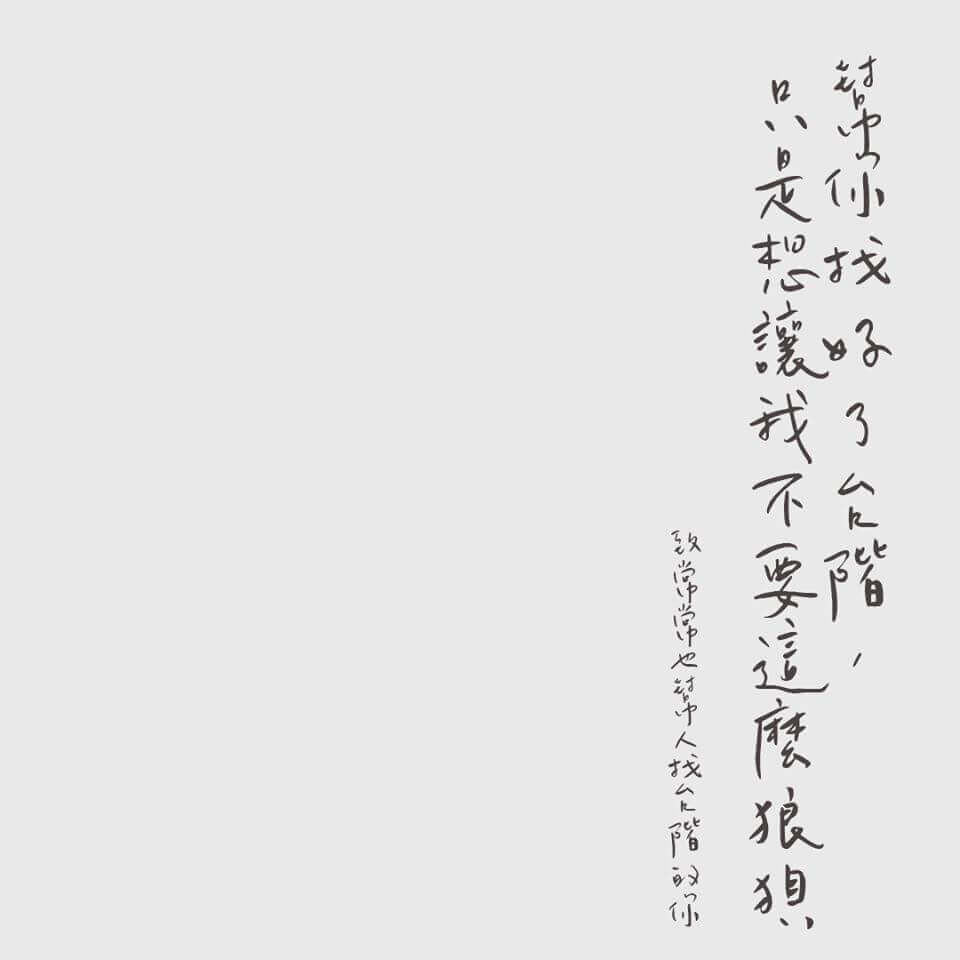 幫你找好了台階，
只是想讓我不要這麼狼狽
致常常也幫人找台階的你